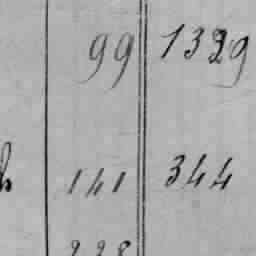 99 1329
141 344
228